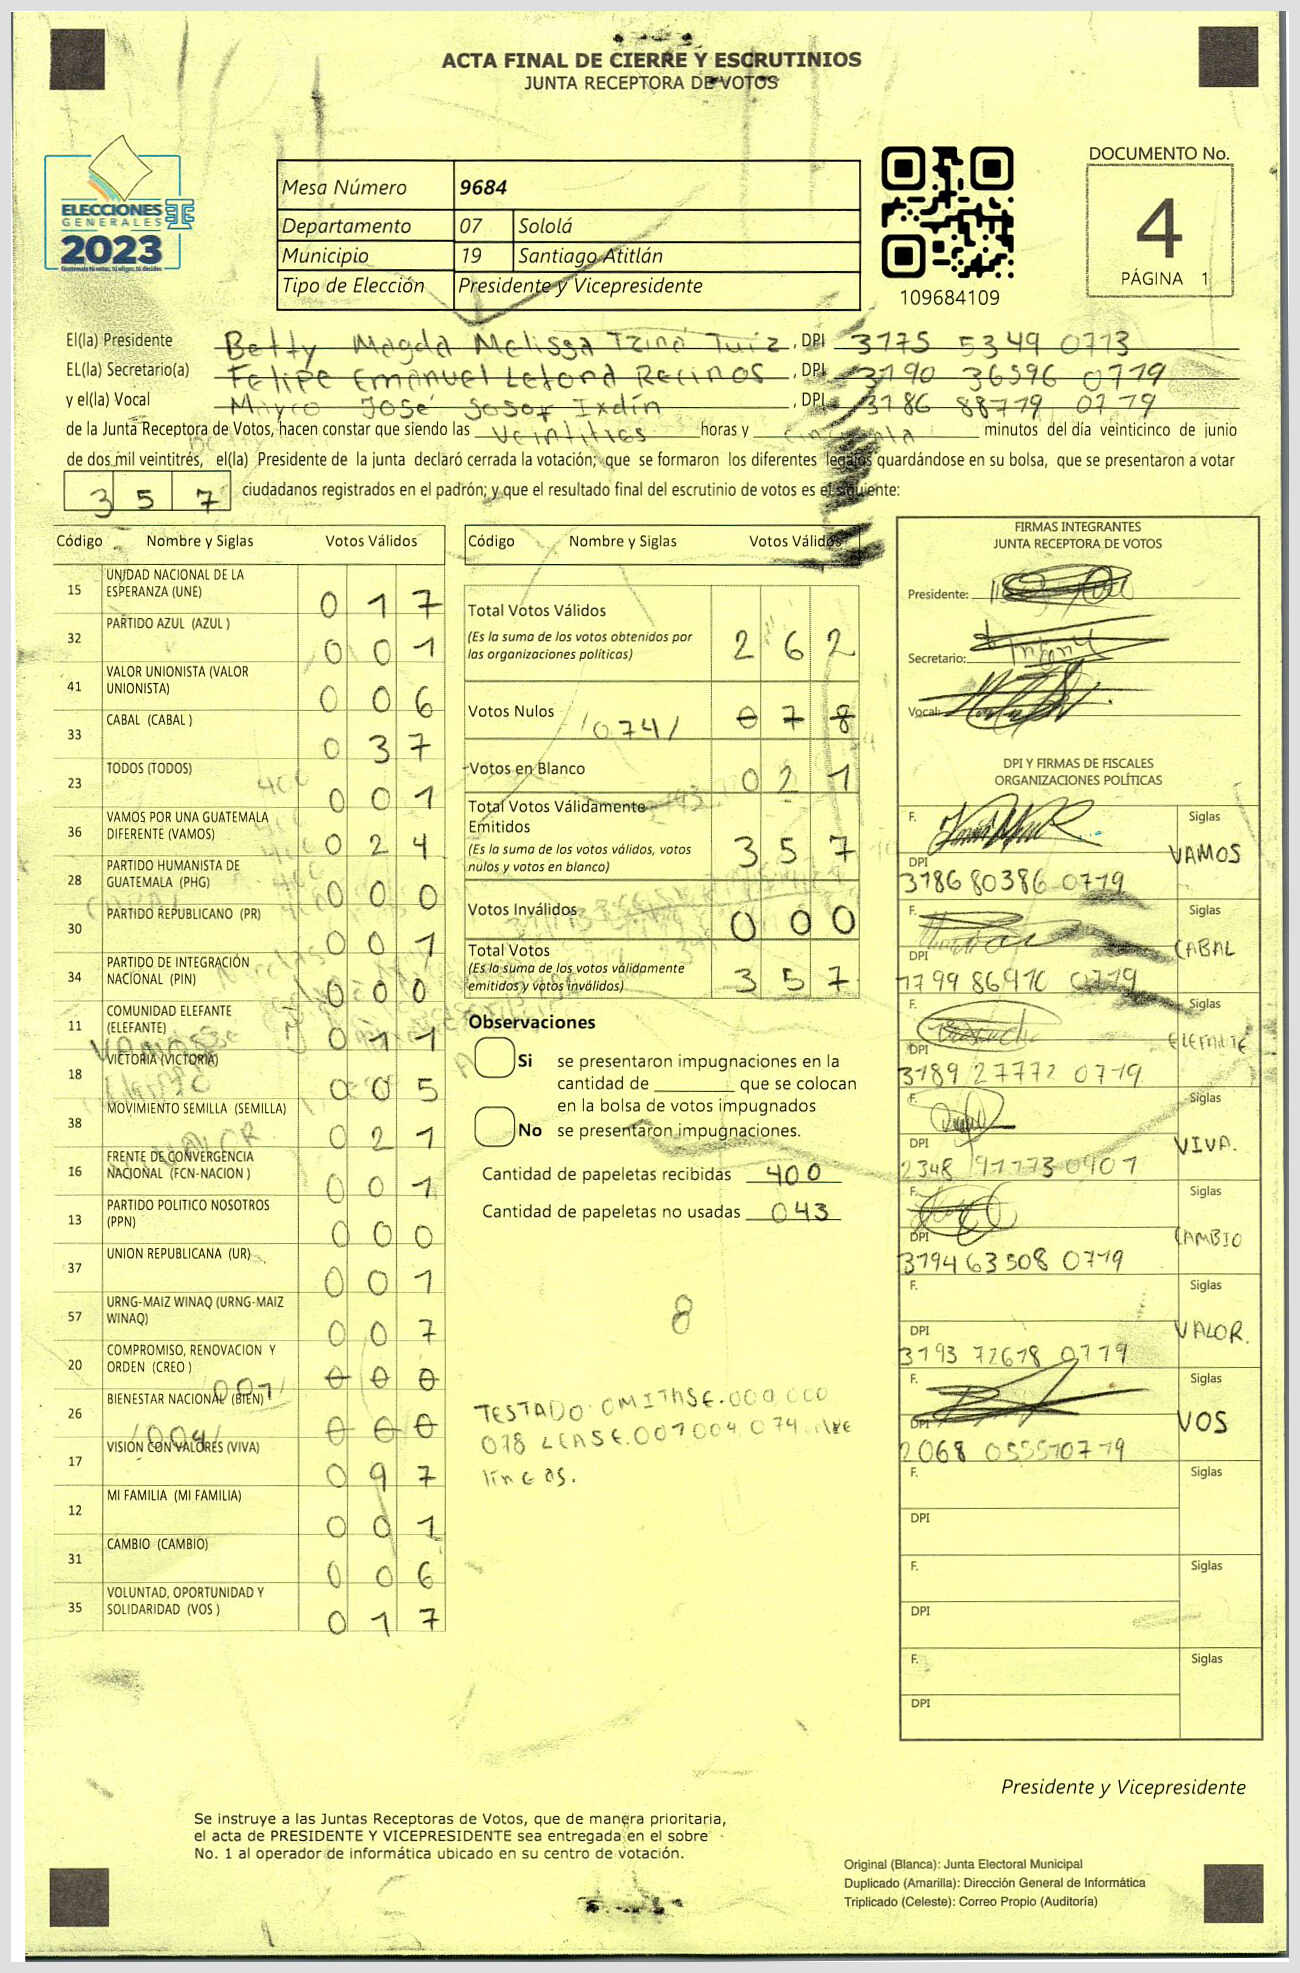 ACTA FINAL DE CIERRE Y ESCRUTINIOS
JUNTA RECEPTORA DE VOTOS
ELECCIONES
GENERALES
2023
Mesa Número 9684
Departamento 07 Sololá
Municipio 19 Santiago Atitlán
Tipo de Elección Presidente y Vicepresidente
109684109
DOCUMENTO No.
4
PÁGINA 1
El(la) Presidente Betty Magda Melissa Tziná Tuiz, DPI 3175 5349 0713
EL(la) Secretario(a) Felipe Emanuel Letona Recinos, DPI 3190 36596 0719
y el(la) Vocal Mayco José Sosof Ixdín, DPI 3186 88779 0719
de la Junta Receptora de Votos, hacen constar que siendo las veintitres horas y minutos del día veinticinco de junio
de dos mil veintitrés, el(la) Presidente de la junta declaró cerrada la votación; que se formaron los diferentes legajos guardándose en su bolsa, que se presentaron a votar
357 ciudadanos registrados en el padrón; y que el resultado final del escrutinio de votos es el siguiente:
Código Nombre y Siglas Votos Válidos
15 UNIDAD NACIONAL DE LA ESPERANZA (UNE) 017
32 PARTIDO AZUL (AZUL ) 001
41 VALOR UNIONISTA (VALOR UNIONISTA) 006
33 CABAL (CABAL ) 037
23 TODOS (TODOS) 001
36 VAMOS POR UNA GUATEMALA DIFERENTE (VAMOS) 024
28 PARTIDO HUMANISTA DE GUATEMALA (PHG) 000
30 PARTIDO REPUBLICANO (PR) 001
34 PARTIDO DE INTEGRACIÓN NACIONAL (PIN) 000
11 COMUNIDAD ELEFANTE (ELEFANTE) 011
18 VICTORIA (VICTORIA) 005
38 MOVIMIENTO SEMILLA (SEMILLA) 021
16 FRENTE DE CONVERGENCIA NACIONAL (FCN-NACION ) 001
13 PARTIDO POLITICO NOSOTROS (PPN) 000
37 UNION REPUBLICANA (UR) 001
57 URNG-MAIZ WINAQ (URNG-MAIZ WINAQ) 007
20 COMPROMISO, RENOVACION Y ORDEN (CREO ) 000
/001/
26 BIENESTAR NACIONAL (BIEN) 000
/004/
17 VISION CON VALORES (VIVA) 097
12 MI FAMILIA (MI FAMILIA) 001
31 CAMBIO (CAMBIO) 006
35 VOLUNTAD, OPORTUNIDAD Y SOLIDARIDAD (VOS ) 017
Código Nombre y Siglas Votos Válidos
Total Votos Válidos 262
(Es la suma de los votos obtenidos por
las organizaciones políticas)
Votos Nulos /074/ 078
Votos en Blanco 021
Total Votos Válidamente
Emitidos 357
(Es la suma de los votos válidos, votos
nulos y votos en blanco)
Votos Inválidos 000
Total Votos 357
(Es la suma de los votos válidamente
emitidos y votos inválidos)
Observaciones
Si se presentaron impugnaciones en la
cantidad de ________ que se colocan
en la bolsa de votos impugnados
No se presentaron impugnaciones.
Cantidad de papeletas recibidas 400
Cantidad de papeletas no usadas 043
8
TESTADO OMITASE.000,000
078 LEASE.001004.074
lineas.
FIRMAS INTEGRANTES
JUNTA RECEPTORA DE VOTOS
Presidente:
Secretario:
Vocal:
DPI Y FIRMAS DE FISCALES
ORGANIZACIONES POLÍTICAS
F. Siglas VAMOS
DPI 3186 80386 0719
F. Siglas CABAL
DPI 1799 86910 0719
F. Siglas ELEFANTE
DPI 3189 27772 0719
F. Siglas VIVA.
DPI 2348 91773 0901
F. Siglas CAMBIO
DPI 3194 63508 0719
F. Siglas VALOR.
DPI 3193 72678 0719
F. Siglas VOS
DPI 2068 05551 0719
F. Siglas
DPI
F. Siglas
DPI
F. Siglas
DPI
Presidente y Vicepresidente
Se instruye a las Juntas Receptoras de Votos, que de manera prioritaria,
el acta de PRESIDENTE Y VICEPRESIDENTE sea entregada en el sobre
No. 1 al operador de informática ubicado en su centro de votación.
Original (Blanca): Junta Electoral Municipal
Duplicado (Amarilla): Dirección General de Informática
Triplicado (Celeste): Correo Propio (Auditoría)